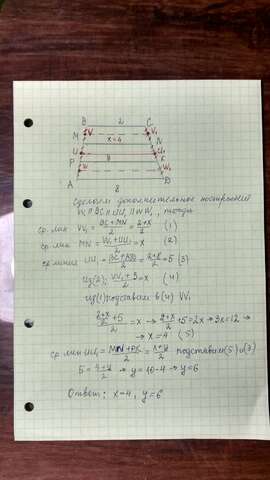 B 2 C
M V V₁
x=4 N
U U₁
P y K
W W₁
A D
8
Сделаем дополнительное построение
VV₁ || BC || UU₁ || WW₁, тогда
ср. лин VV₁ = (BC+MN)/2 = (2+x)/2 (1)
ср. лин MN = (VV₁+UU₁)/2 = x (2)
ср. линия UU₁ = (BC+AD)/2 = (2+8)/2 = 5 (3)
Из (2); (VV₁+5)/2 = x (4)
из (1) подставим в (4) VV₁
((2+x)/2 +5)/2 = x → (2+x)/2 + 5 = 2x → 3x = 12 →
→ x = 4 (5)
ср. лин UU₁ = (MN+PK)/2 = (x+y)/2 подставим (5) и (3)
5 = (4+y)/2 → y = 10-4 → y = 6
Ответ: x=4, y=6